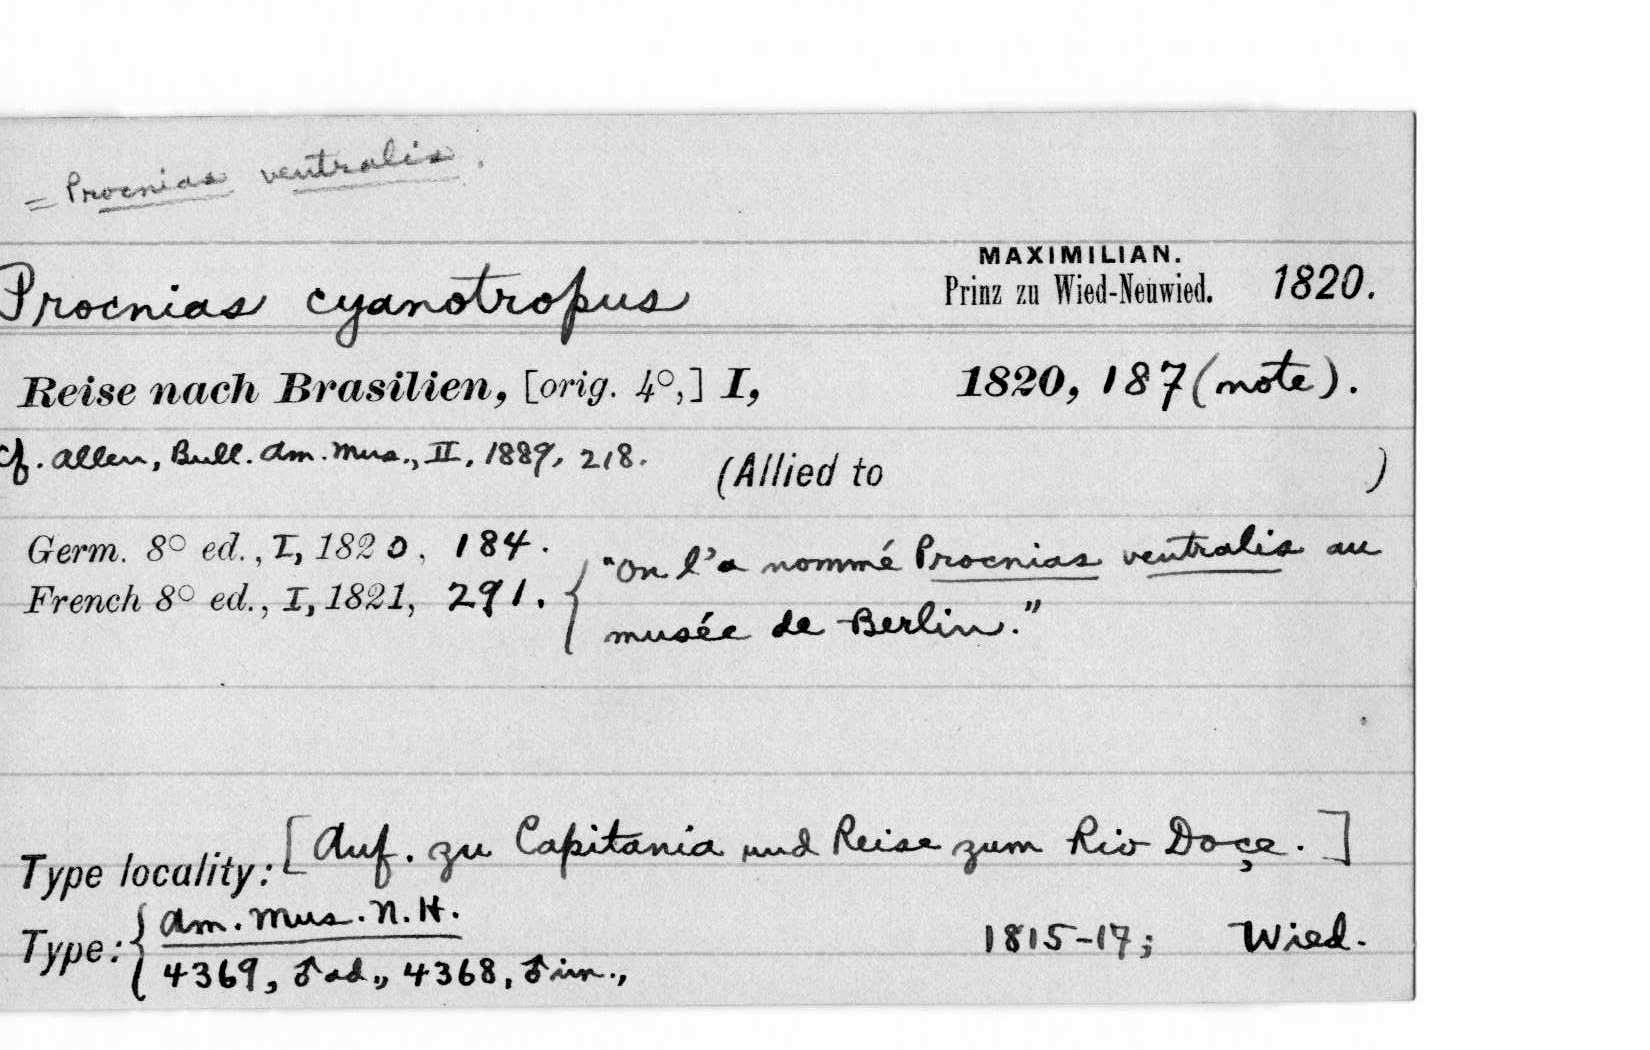 = Procnias ventralis.
Procnias cyanotropus
MAXIMILIAN.
Prinz zu Wied-Neuwied. 1820.
Reise nach Brasilien, [orig. 4°,] I, 1820, 187 (note).
Cf. Allen, Bull. Am. Mus., II, 1889, 218.
(Allied to )
Germ. 8° ed., I, 1820, 184.
French 8° ed., I, 1821, 291.
{ "On l'a nommé Procnias ventralis au
musée de Berlin."
Type locality: [Auf. zu Capitania und Reise zum Rio Doçe.]
Type: { Am. Mus. N. H. 1815-17; Wied.
4369, ♂ ad., 4368, ♂ im.,